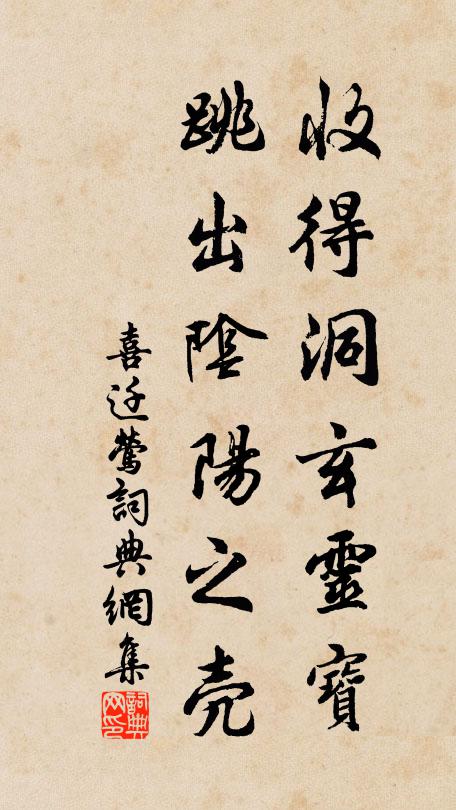 收得洞玄靈寶
跳出陰陽之壳
喜迁鶯詞典網集
詞典网印